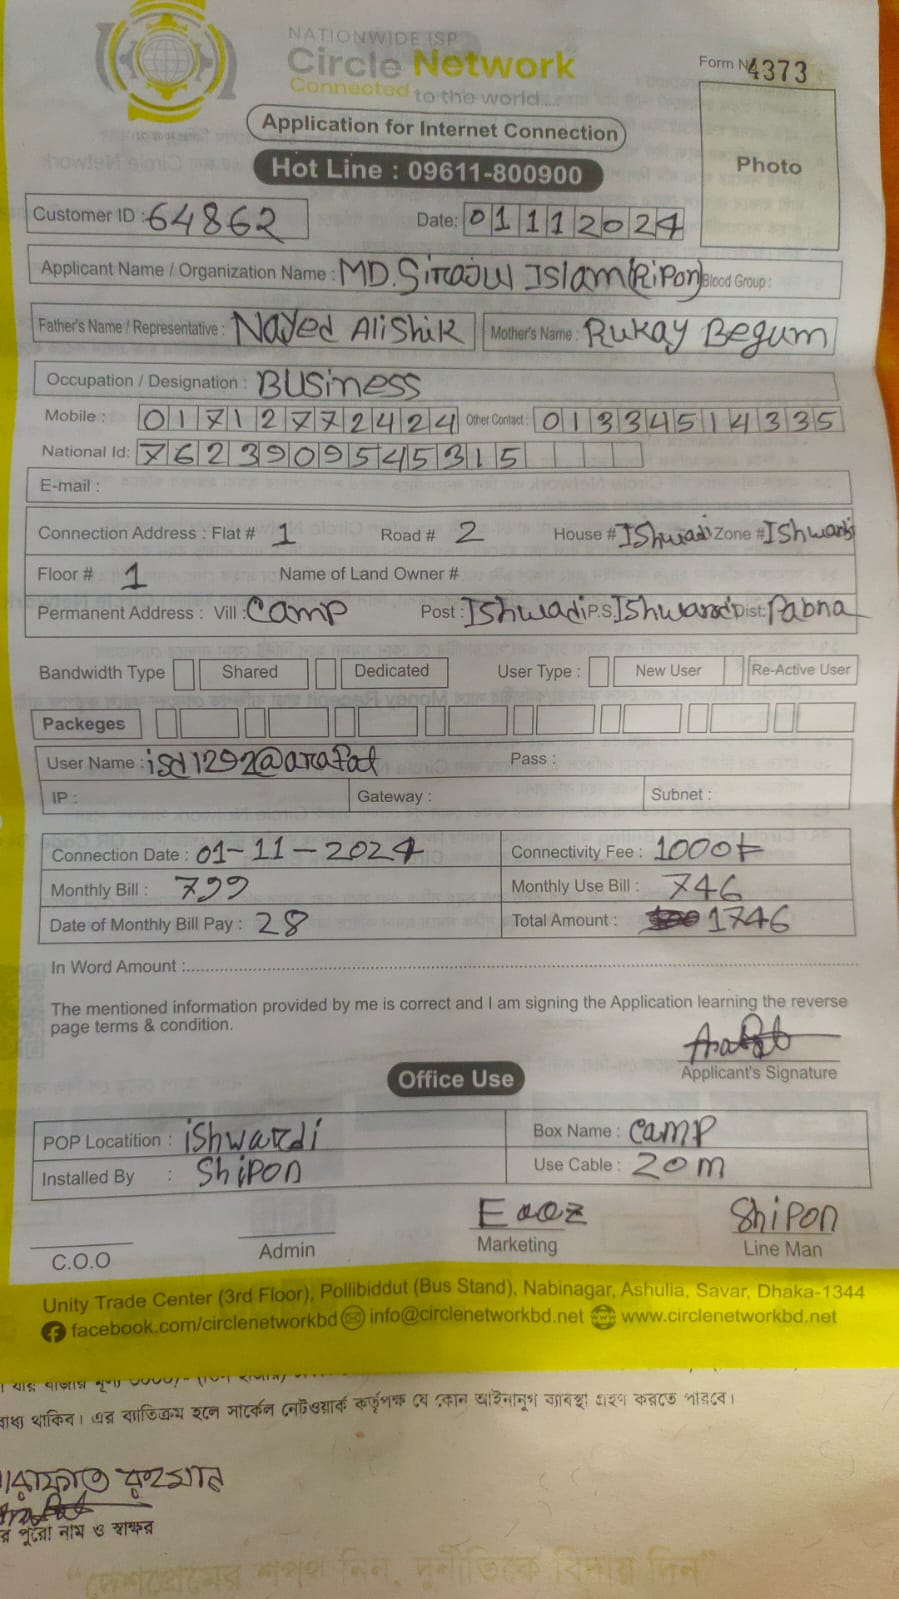 NATIONWIDE ISP
Circle Network
Connected to the world....
Form No 4373
Application for Internet Connection
Photo
Hot Line : 09611-800900
Customer ID : 64862 Date: 01112024
Applicant Name / Organization Name : MD. Sirajul Islam (Ripon) Blood Group :
Father's Name / Representative : Nayed Ali Shik Mother's Name : Rukay Begum
Occupation / Designation : Business
Mobile : 01712772424 Other Contact : 01334514335
National Id: 7623909545315
E-mail :
Connection Address : Flat # 1 Road # 2 House # Ishwadi Zone # Ishwardi
Floor # 1 Name of Land Owner #
Permanent Address : Vill : Camp Post : Ishwadi P.S. Ishwardi Dist: Pabna
Bandwidth Type Shared Dedicated User Type : New User Re-Active User
Packeges
User Name : isd1292@arafat Pass :
IP : Gateway : Subnet :
Connection Date : 01-11-2024 Connectivity Fee : 1000৳
Monthly Bill : 799 Monthly Use Bill : 746
Date of Monthly Bill Pay : 28 Total Amount : 1746
In Word Amount :
The mentioned information provided by me is correct and I am signing the Application learning the reverse
page terms & condition.
Arafat
Applicant's Signature
Office Use
POP Locatition : ishwardi Box Name : camp
Installed By : Shipon Use Cable : 20m
Shipon
C.O.O Admin Marketing Line Man
Unity Trade Center (3rd Floor), Pollibiddut (Bus Stand), Nabinagar, Ashulia, Savar, Dhaka-1344
facebook.com/circlenetworkbd info@circlenetworkbd.net www.circlenetworkbd.net
বাধ্য থাকিব। এর ব্যতিক্রম হলে সার্কেল নেটওয়ার্ক কর্তৃপক্ষ যে কোন আইনানুগ ব্যবস্থা গ্রহণ করতে পারবে।
রহমান
র পুরো নাম ও স্বাক্ষর
“দেশপ্রেমের শপথ নিন, দুর্নীতিকে বিদায় দিন”